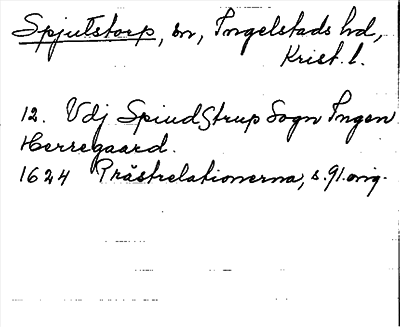 Spjutstorp, sn, Ingelstads hd,
Krist. l.
12. Udj SpiudStrup Sogn Ingen
Herregaard.
1624 Prästrelationerna, s. 91. orig.